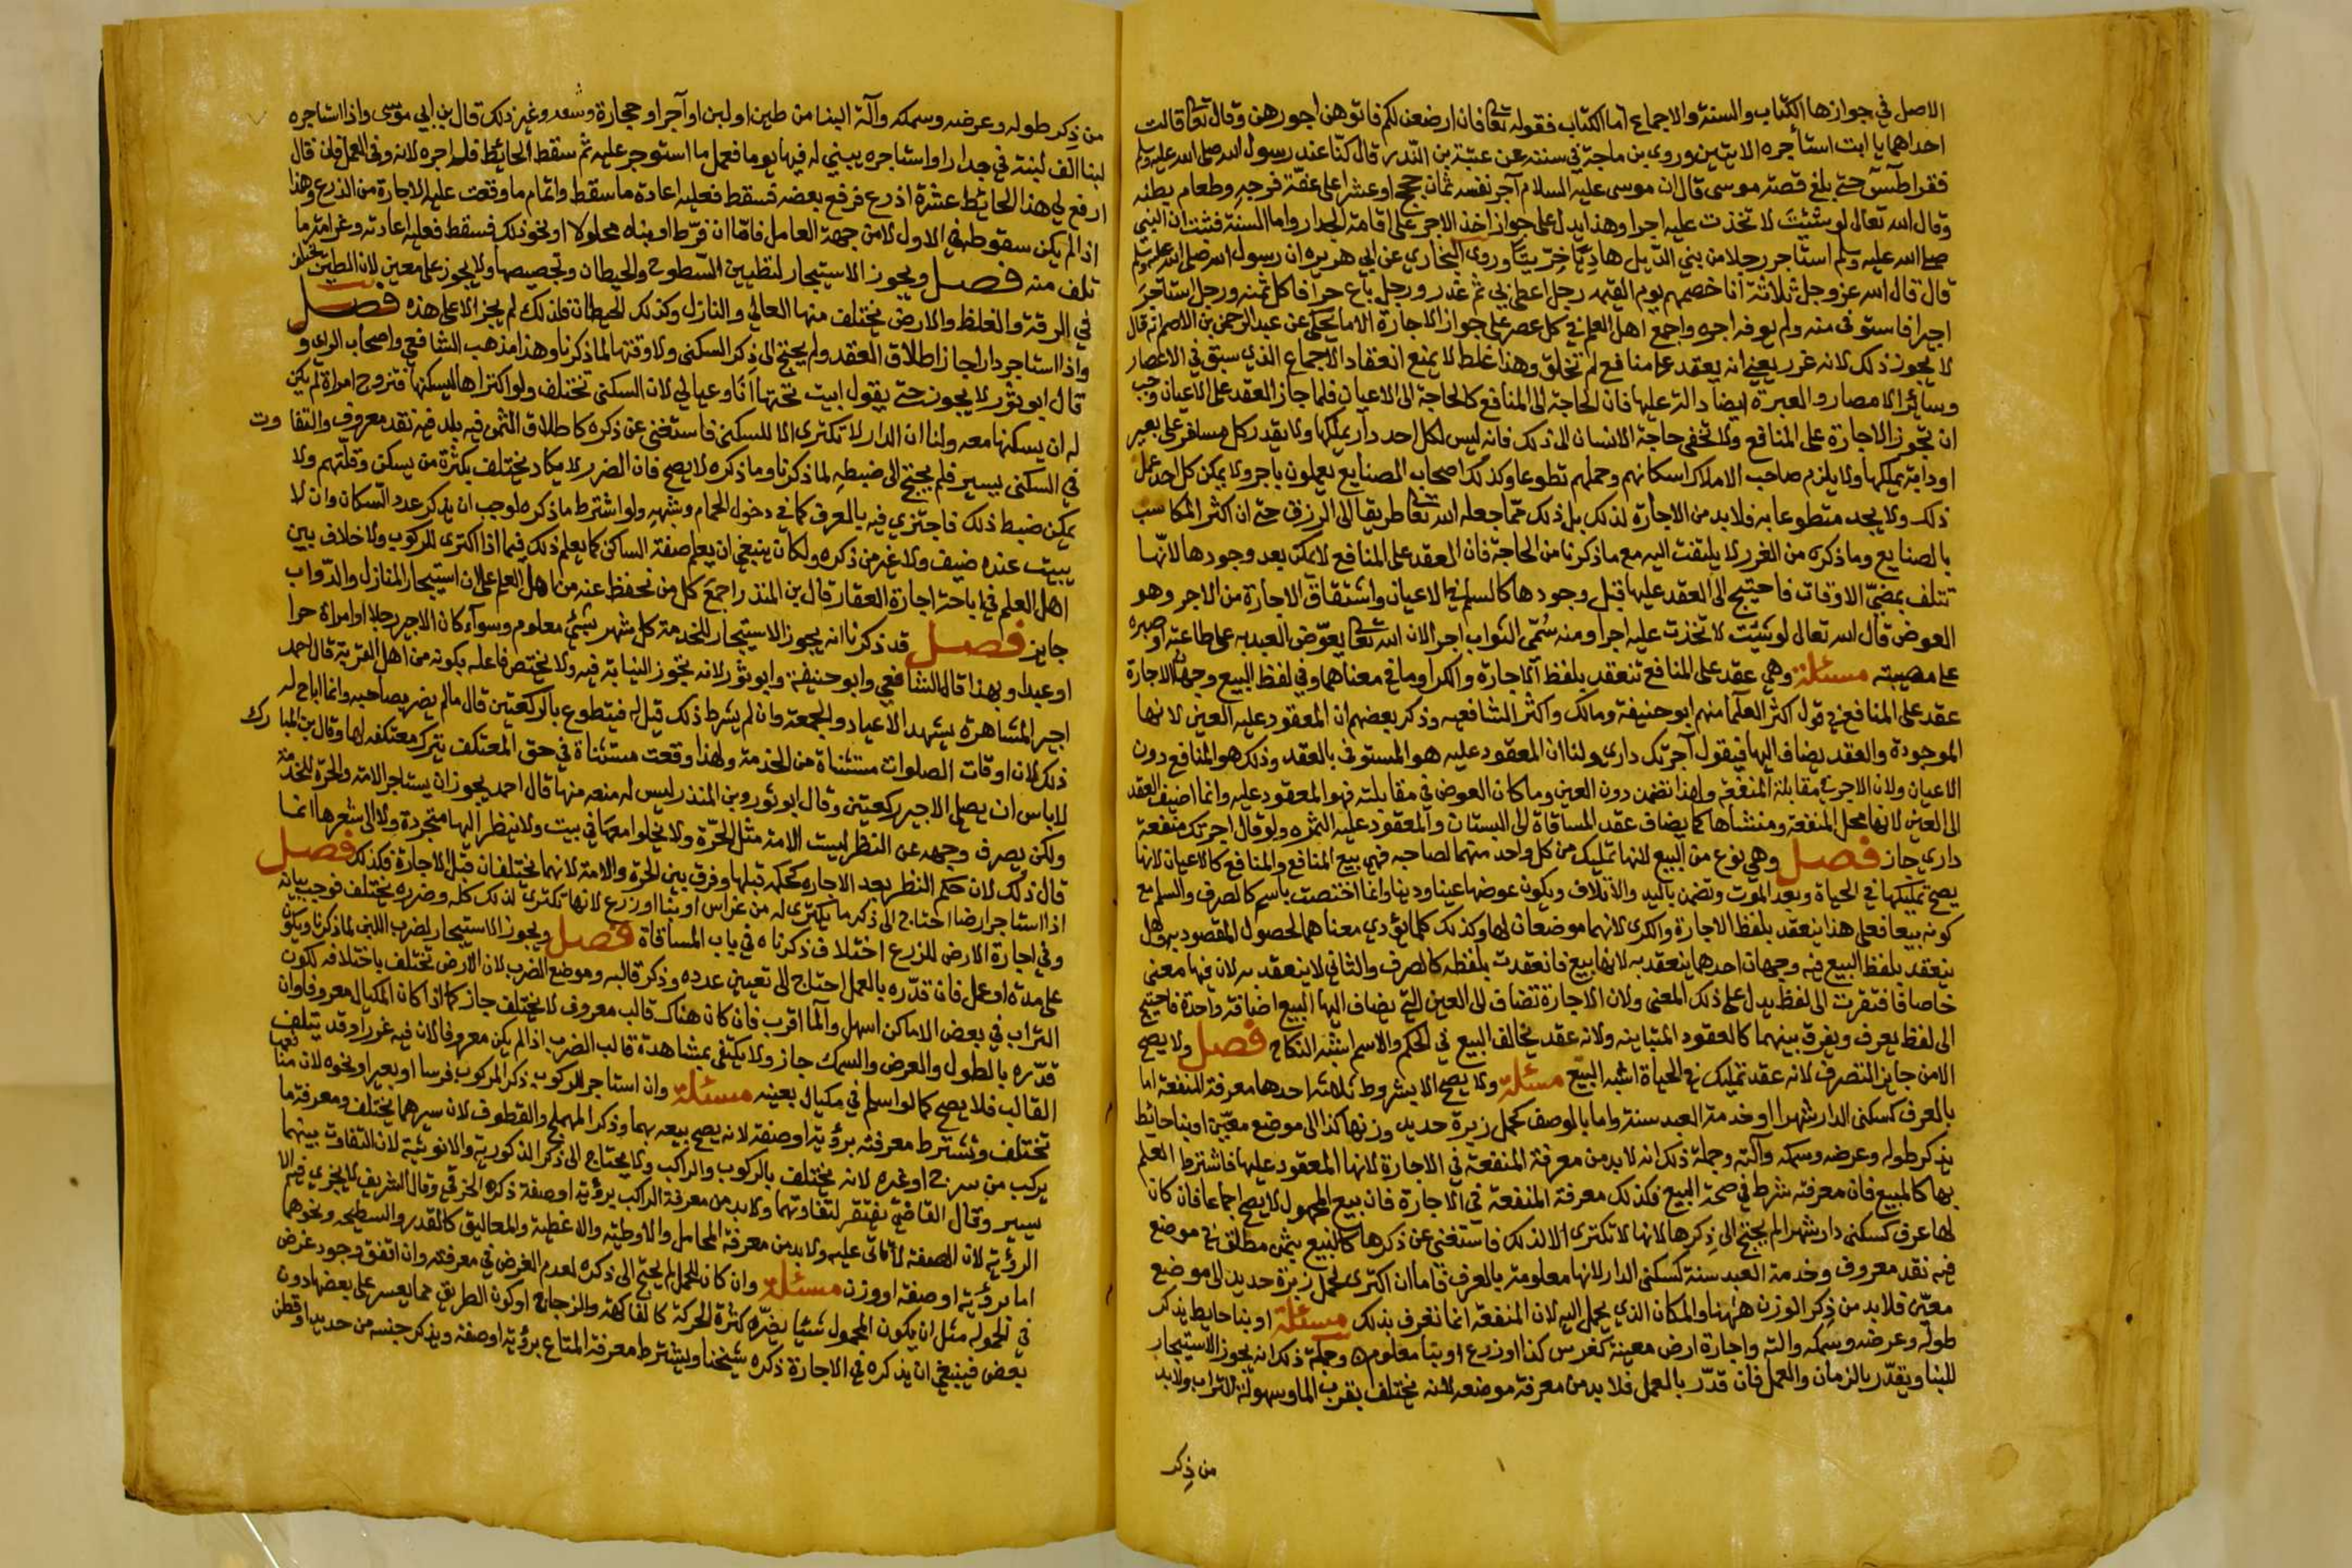 الاصل في جوازها الكتاب والسنة والاجماع اما الكتاب فقوله تعا فان ارضعن لكم فاتوهن اجورهن وقال تعا قالت
احداهما يا ابت استأجره الايتين وروى بن ماجة في سننه عن عتبة بن الندر قال كنا عند رسول الله صلى الله عليه وسلم
فقرا طسٓ حتى بلغ قصة موسى قال ان موسى عليه السلام آجر نفسه ثمان حجج او عشرا على عفة فرجه وطعام بطنه
وقال الله تعالى لو شئت لاتخذت عليه اجرا وهذا يدل على جواز اخذ الاجر على اقامة الجدار واما السنة فثبت ان النبي
صلى الله عليه وسلم استأجر رجلا من بني الديل هاديا خرّيتا وروى البخاري عن ابي هريره ان رسول الله صلى الله عليه وسلم
قال قال الله عز وجل ثلاثة انا خصمهم يوم القيمه رجل اعطى بي ثم غدر ورجل باع حرا فاكل ثمنه ورجل استاجر
اجيرا فاستوفى منه ولم يوفه اجره واجمع اهل العلم في كل عصر على جواز الاجارة الا ما يحكى عن عبد الرحمن بن الاصم انه قال
لا يجوز ذلك لانه غرر يعني انه يعقد على منافع لم تخلق وهذا غلط لا يمنع انعقاد الاجماع الذي سبق في الاعصار
وسائر الامصار والعبرة ايضا دالة عليها فان الحاجة الى المنافع كالحاجة الى الاعيان فلما جاز العقد على الاعيان وجب
ان تجوز الاجارة على المنافع ولا تخفى حاجة الانسان الى ذلك فانه ليس لكل احد دار يملكها ولا يقدر كل مسافر على بعير
او دابة يملكها ولا يلزم صاحب الاملاك اسكانهم وحملهم تطوعا وكذلك اصحاب الصنايع يعملون باجر ولا يمكن كل احد عمل
ذلك ولا يجد متطوعا به فلا بد من الاجارة لذلك بل ذلك مما جعله الله تعا طريقا الى الرزق حتى ان اكثر المكاسب
بالصنايع وما ذكره من الغرر لا يلتفت اليه مع ما ذكرنا من الحاجة فان العقد على المنافع لا يمكن بعد وجودها لانها
تتلف بمضي الاوقات فاحتيج الى العقد عليها قبل وجودها كالسلم في الاعيان واشتقاق الاجارة من الاجر وهو
العوض قال الله تعالى لو شئت لاتخذت عليه اجرا ومنه سمي الثواب اجرا لان الله تعا يعوض العبد به على طاعته او صبره
على مصيبته مسئلة وهي عقد على المنافع تنعقد بلفظ الاجارة والكرا وما في معناهما وفي لفظ البيع وجهان الاجارة
عقد على المنافع في قول اكثر العلما منهم ابو حنيفة ومالك واكثر الشافعيه وذكر بعضهم ان المعقود عليه العين لانها
الموجودة والعقد يضاف اليها فيقول آجرتك داري ولنا ان المعقود عليه هو المستوفى بالعقد وذلك هو المنافع دون
الاعيان ولان الاجر في مقابلة المنفعة ولهذا تضمن دون العين وما كان العوض في مقابلته فهو المعقود عليه وانما اضيف العقد
الى العين لانها محل المنفعة ومنشأها كما يضاف عقد المساقاة الى البستان والمعقود عليه الثمره ولو قال اجرتك منفعة
داري جاز فصل وهي نوع من البيع لانها تمليك من كل واحد منهما لصاحبه فهي بيع المنافع والمنافع كالاعيان لانها
يصح تمليكها في الحياة وبعد الموت وتضمن باليد والاتلاف ويكون عوضها عينا ودينا وانما اختصت باسم كالصرف والسلم مع
كونه بيعا فعلى هذا ينعقد بلفظ الاجارة والكرى لانهما موضعان لها وكذلك كلما يؤدي معناهما لحصول المقصود به وهل
ينعقد بلفظ البيع فيه وجهان احدهما ينعقد به لانها بيع فانعقدت بلفظه كالصرف والثاني لا ينعقد به لان فيها معنى
خاصا فافتقرت الى لفظ يدل على ذلك المعنى ولان الاجارة تضاف الى العين التي يضاف اليها البيع اضافة واحدة فاحتيج
الى لفظ يعرف ويفرق بينهما كالعقود المتباينه ولانه عقد يخالف البيع في الحكم والاسم اشبه النكاح فصل ولا يصح
الا من جايز التصرف لانه عقد تمليك في الحياة اشبه البيع مسئلة ولا يصح الا بشروط ثلاثة احدها معرفة المنفعة اما
بالعرف كسكنى الدار شهرا او خدمة العبد سنة واما بالوصف كحمل زبرة حديد وزنها كذا الى موضع معين او بنا حائط
يذكر طوله وعرضه وسمكه وآلته وجملة ذلك انه لا بد من معرفة المنفعة في الاجارة لانها المعقود عليها فاشترط العلم
بها كالمبيع فان معرفته شرط في صحة البيع فكذلك معرفة المنفعة في الاجارة فان بيع المجهول لا يصح اجماعا فان كان
لها عرف كسكنى دار شهرا لم يحتج الى ذكرها لانها لا تكترى الا لذلك فاستغنى عن ذكرها كالبيع بثمن مطلق في موضع
فيه نقد معروف وخدمة العبد سنة كسكنى الدار لانها معلومة بالعرف فاما ان اكترى لحمل زبرة حديد الى موضع
معين فلا بد من ذكر الوزن ههنا والمكان الذي يحمل اليه لان المنفعة انما تعرف بذلك مسئلة او بنا حايط يذكر
طوله وعرضه وسمكه والته واجارة ارض معينة كغرس كذا او زرع او بنا معلوم وجملة ذلك انه يجوز الاستيجار
للبنا ويقدر بالزمان والعمل فان قدر بالعمل فلا بد من معرفة موضعه لانه يختلف بقرب الما وسهولة التراب ولا بد
من ذكر
من ذكر طوله وعرضه وسمكه وآلة البنا من طين او لبن او آجر او حجارة وشيد وغير ذلك قال بن ابي موسى واذا استاجره
لبنا الف لبنة في جدار او استاجره يبني له فيها يوما فعمل ما استوجر عليه ثم سقط الحائط فله اجره لانه وفى العمل فان قال
ارفع لي هذا الحائط عشرة اذرع فرفع بعضه فسقط فعليه اعادة ما سقط واتمام ما وقعت عليه الاجارة من الذرع وهذا
اذا لم يكن سقوطه في الاول لامن جهة العامل فاما ان فرّط او بناه محلولا او نحو ذلك فسقط فعليه اعادته وغرامة ما
تلف منه فصل ويجوز الاستيجار لتطيين السطوح والحيطان وتجصيصها ولا يجوز على معين لان الطين يختلف
في الرقة والغلظ والارض يختلف منها العالي والنازل وكذلك الحيطان فلذلك لم يجز الا على هذه فصل
واذا استاجر دارا جاز اطلاق العقد ولم يحتج الى ذكر السكنى ولا وقتها لما ذكرنا وهذا مذهب الشافعي واصحاب الراي و
قال ابو ثور لا يجوز حتى يقول ابيت تحتها انا وعيالي لان السكنى تختلف ولو اكتراها ليسكنها فتزوج امراة لم يكن
له ان يسكنها معه ولنا ان الدار لا تكترى الا للسكنى فاستغنى عن ذكره كاطلاق الثمن فيه بلد فيه نقد معروف والتفاوت
في السكنى يسير فلم يحتج الى ضبطه لما ذكرنا وما ذكره لا يصح فان الضرر لا يكاد يختلف بكثرة من يسكن وقلتهم ولا
يمكن ضبط ذلك فاجتزي فيه بالعرف كما في دخول الحمام وشبهه ولو اشترط ما ذكره لوجب ان يذكر عدد السكان وان لا
يبيت عنده ضيف ولا غير من ذكره ولكان ينبغي ان يعلم صفة الساكن كما يعلم ذلك فيما اذا اكترى للركوب ولا خلاف بين
اهل العلم في اباحة اجارة العقار قال بن المنذر اجمع كل من نحفظ عنه من اهل العلم على ان استيجار المنازل والدواب
جايز فصل قد ذكرنا انه يجوز الاستيجار للخدمة كل شهر بشيء معلوم وسوآء كان الاجير رجلا او امراة حرا
او عبدا وبهذا قال الشافعي وابو حنيفة وابو ثور لانه تجوز النيابة فيه ولا يختص فاعله بكونه من اهل القربة قال احمد
اجير المشاهرة يشهد الاعياد والجمعة وان لم يشرط ذلك قيل له فيتطوع بالركعتين قال ما لم يضر بصاحبه وانما اباح له
ذلك لان اوقات الصلوات مستثناة من الخدمة ولهذا وقعت مستثناة في حق المعتكف بترك معتكفه لها وقال بن المبارك
لا باس ان يصلي الاجير ركعتين وقال ابو ثور وبن المنذر ليس له منعه منها قال احمد يجوز ان يستاجر الامة والحرة للخدمة
ولكن يصرف وجهه عن النظر ليست الامة مثل الحرّة ولا يخلوا معهما في بيت ولا ينظر اليها متجردة ولا الى شعرها انما
قال ذلك لان حكم النظر بعد الاجاره كحكمه قبلها وفرق بين الحرة والامة لانهما يختلفان قبل الاجارة فكذلك فصل
اذا استاجر ارضا احتاج الى ذكر ما يكترى له من غراس او بنا او زرع لانها تكترى لذلك كله وضرره يختلف فوجب بيانه
وفي اجارة الارض للزرع اختلاف ذكرناه في باب المساقاة فصل ويجوز الاستيجار لضرب اللبن لما ذكرنا ويكون
على مدة او عمل فان قدّره بالعمل احتاج الى تعيين عدده وذكر قالبه وموضع الضرب لان الارض تختلف باختلافه لكون
التراب في بعض الاماكن اسهل والما اقرب فان كان هناك قالب معروف لا يختلف جاز كما اذا كان المكيال معروفا وان
قدّره بالطول والعرض والسمك جاز ولا يكتفى بمشاهدة قالب الضرب اذا لم يكن معروفا لان فيه غررا وقد يتلف
القالب فلا يصح كما لو اسلم في مكيال بعينه مسئلة وان استاجر للركوب ذكر المركوب فرسا او بعيرا ونحوه لان منافعها
تختلف وتشترط معرفته برؤية او صفة لانه يصح بيعه بهما وذكر المهملج والقطوف لان سيرهما يختلف ومعرفة ما
يركب من سرج او غيره لانه يختلف بالركوب والراكب ولا يحتاج الى ذكر الذكورية والانوثية لان التفاوت بينهما
يسير وقال القاضي يفتقر لتفاوتهما ولا بد من معرفة الراكب برؤية او صفة ذكره الخرقي وقال الشريف لا يجزي فيه الا
الرؤية لان الصفة لا تاتي عليه ولا بد من معرفة المحامل والاوطية والاغطية والمعاليق كالقدر والسطيحه ونحوهما
اما برؤية او صفة او وزن مسئلة وان كان للحمل لم يحتج الى ذكره لعدم الغرض في معرفته وان اتفق وجود غرض
في الحموله مثل ان يكون المحمول شيئا يضره كثرة الحركة كالفاكهة والزجاج او كون الطريق مما يعسر على بعضها دون
بعض فينبغي ان يذكره في الاجارة ذكره شيخنا ويشترط معرفة المتاع برؤية او صفة ويذكر جنسه من حديد او قطن